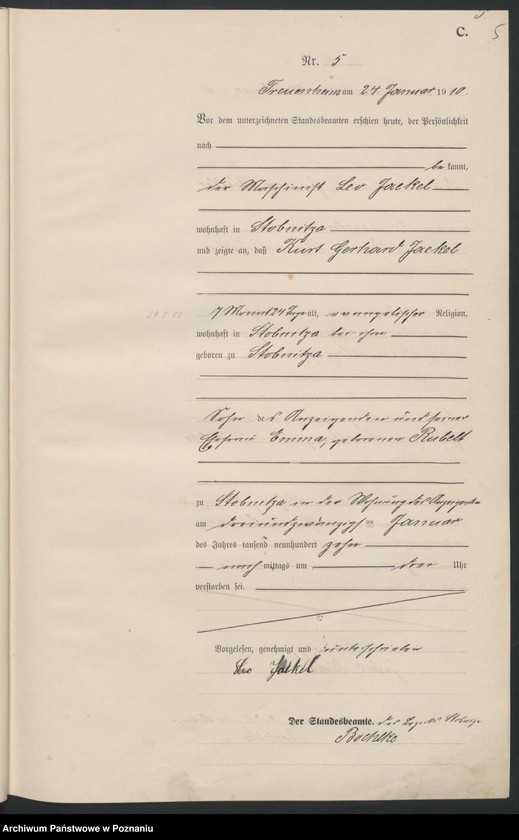 C.
5
Nr. 5
Treuenheim am 24 Januar 1910.
Vor dem unterzeichneten Standesbeamten erschien heute, der Persönlichkeit
nach
bekannt,
der Maschinist Leo Jaekel
wohnhaft in Stobnitza
und zeigte an, daß Kurt Gerhard Jaekel
7 Monat 24 Tage alt, evangelischer Religion,
wohnhaft in Stobnitza bei ihm
geboren zu Stobnitza
Sohn des Anzeigenden und seiner
Ehefrau Emma, geborenen
zu Stobnitza in der Wohnung des Anzeigenden
am dreiundzwanzigsten Januar
des Jahres tausend neunhundert zehn
nachmittags um drei Uhr
verstorben sei.
Vorgelesen, genehmigt und unterschrieben
Leo Jaekel
Der Standesbeamte.
Archiwum Państwowe w Poznaniu